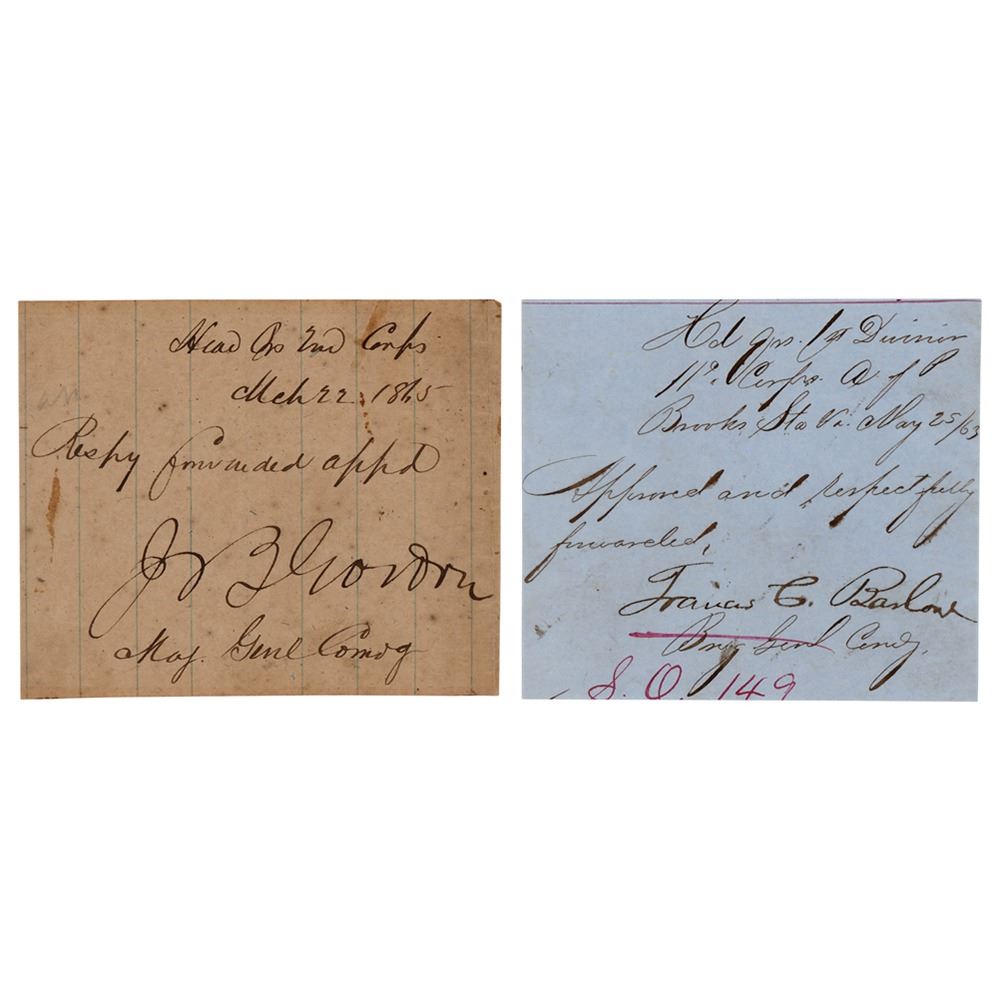 Head Qrs 2nd Corps
Mch 22. 1865
Respy forwarded appd
J B Gordon
Maj. Genl Comdg
Hd Qrs. 1st Division
11th Corps. A of P
Brooks Sta Va. May 25/63
Approved and respectfully
forwarded,
Francis C. Barlow
Brig Genl Comdg.
S. O. 149